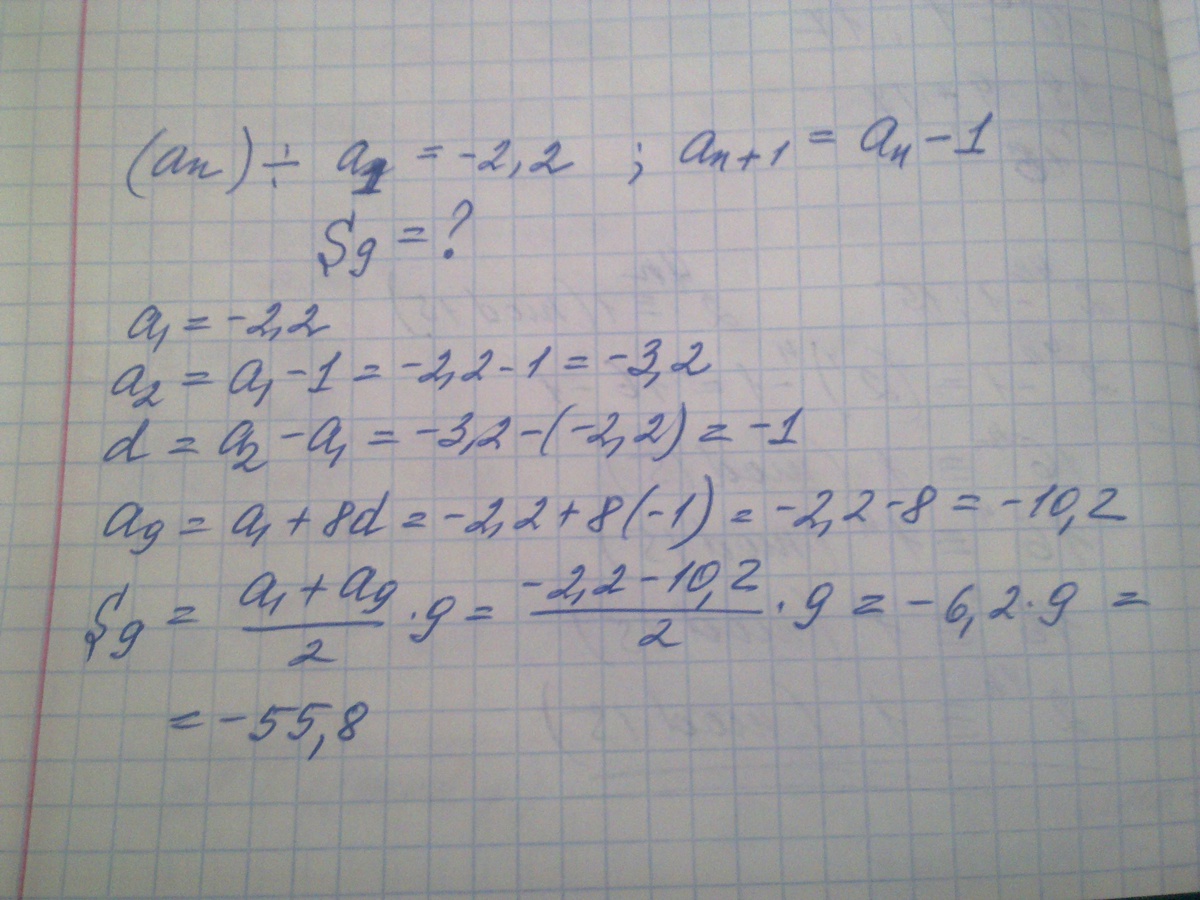 (aₙ) ÷ a₁ = -2,2 ; aₙ₊₁ = aₙ - 1
S₉ = ?
a₁ = -2,2
a₂ = a₁ - 1 = -2,2 - 1 = -3,2
d = a₂ - a₁ = -3,2 - (-2,2) = -1
a₉ = a₁ + 8d = -2,2 + 8(-1) = -2,2 - 8 = -10,2
S₉ = (a₁ + a₉)/2 · 9 = (-2,2 - 10,2)/2 · 9 = -6,2 · 9 =
= -55,8